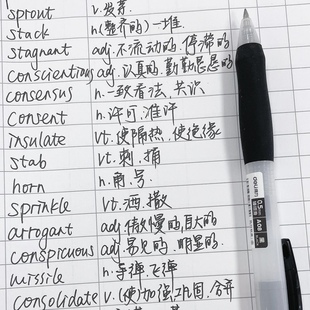 sprout v.发芽
stack n(整齐的)一堆
stagnant adj.不流动的.停滞的
conscientious adj.认真的.勤勤恳恳的
consensus n.一致看法.共识
consent n.许可.准许
insulate vt.使隔热.使绝缘
stab vt.刺.捅
horn n.角.号
sprinkle vt.洒.撒
arrogant adj.傲慢的.自大的
conspicuous adj.易见的.明显的
missile n.导弹.飞弹
consolidate v.(使)加强.巩固.合并
deli
0.5mm
A08